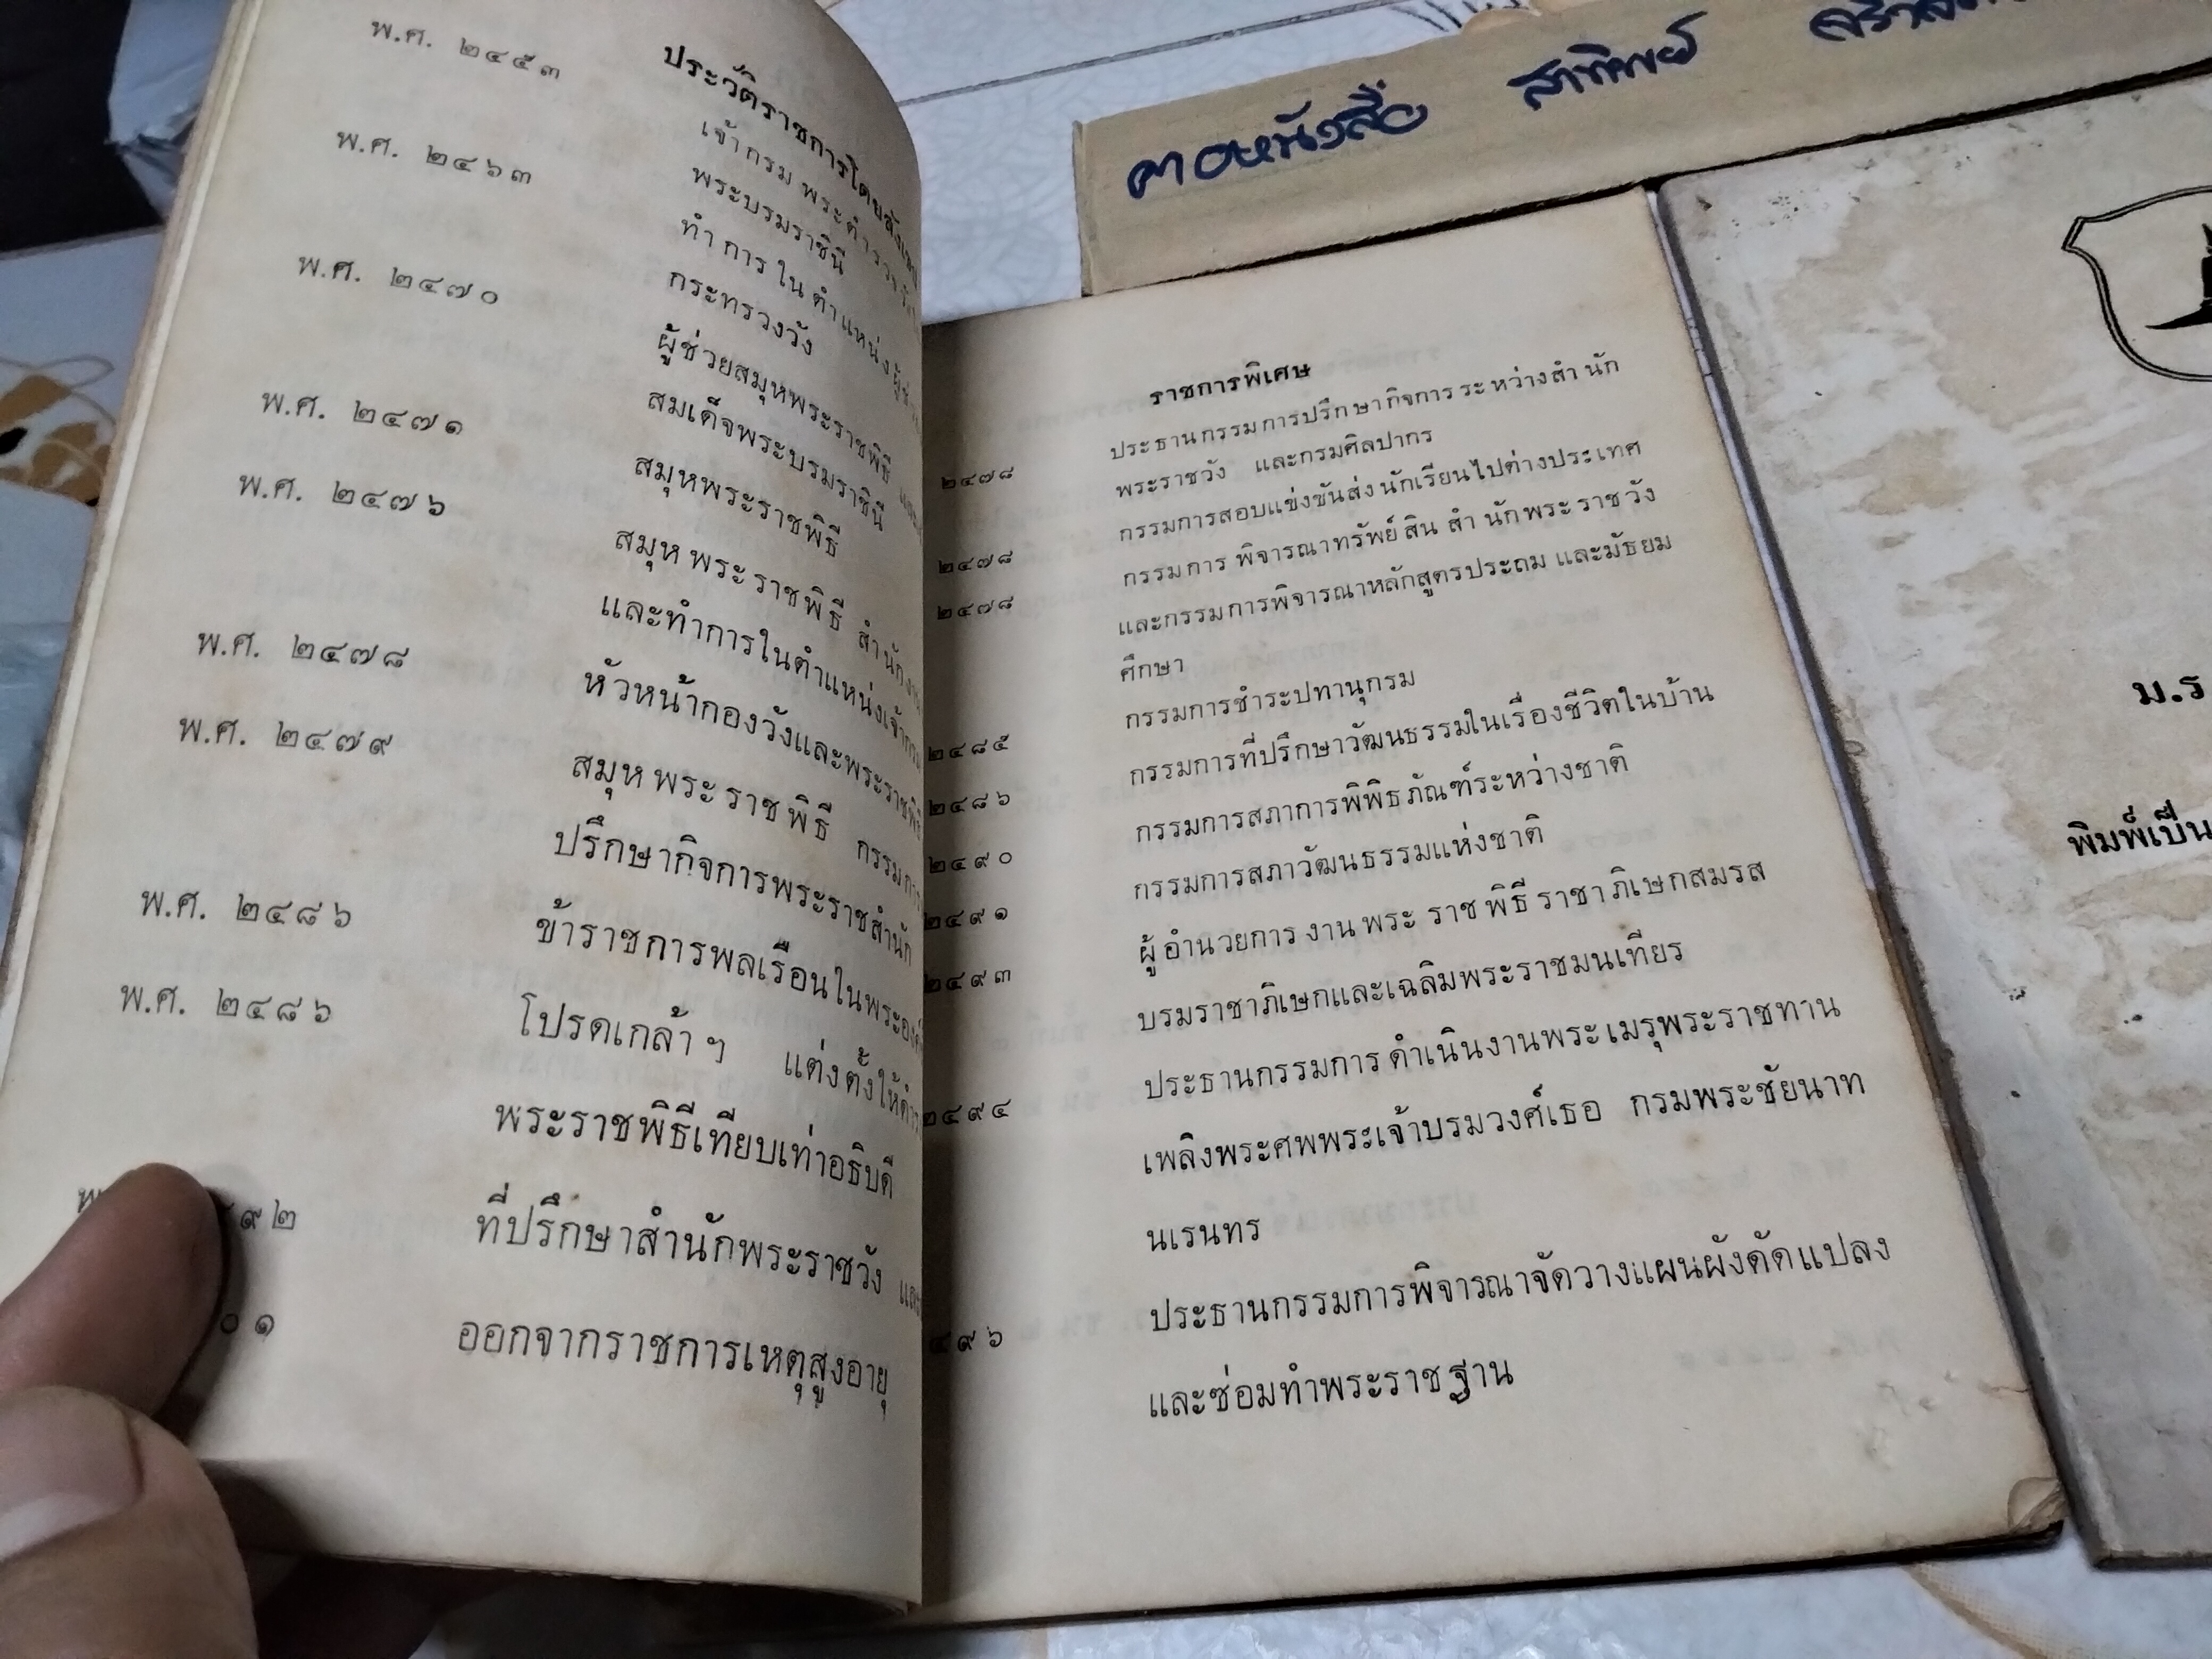 ประวัติราชการโดยสังเขป
พ.ศ. ๒๔๕๓ เจ้ากรม พระตำรวจ
พระบรมราชินี
พ.ศ. ๒๔๖๓ ทำการในตำแหน่งผู้ช่วย
กระทรวงวัง
พ.ศ. ๒๔๗๐ ผู้ช่วยสมุหพระราชพิธี และ
สมเด็จพระบรมราชินี
พ.ศ. ๒๔๗๑ สมุหพระราชพิธี
พ.ศ. ๒๔๗๖ สมุหพระราชพิธี สำนักงาน
และทำการในตำแหน่งเจ้ากรม
พ.ศ. ๒๔๗๘ หัวหน้ากองวังและพระราชพิธี
พ.ศ. ๒๔๗๙ สมุหพระราชพิธี กรรมการ
ปรึกษากิจการพระราชสำนัก
พ.ศ. ๒๔๘๖ ข้าราชการพลเรือนในพระองค์
พ.ศ. ๒๔๘๖ โปรดเกล้า ฯ แต่งตั้งให้
พระราชพิธีเทียบเท่าอธิบดี
๙๒ ที่ปรึกษาสำนักพระราชวัง และ
๐๑ ออกจากราชการเหตุสูงอายุ
ราชการพิเศษ
๒๔๗๘ ประธานกรรมการปรึกษากิจการระหว่างสำนัก
พระราชวัง และกรมศิลปากร
๒๔๗๘ กรรมการสอบแข่งขันส่งนักเรียนไปต่างประเทศ
๒๔๗๘ กรรมการพิจารณาทรัพย์สินสำนักพระราชวัง
และกรรมการพิจารณาหลักสูตรประถม และมัธยม
ศึกษา
๒๔๘๕ กรรมการชำระปทานุกรม
๒๔๘๖ กรรมการที่ปรึกษาวัฒนธรรมในเรื่องชีวิตในบ้าน
๒๔๙๐ กรรมการสภาการพิพิธภัณฑ์ระหว่างชาติ
๒๔๙๑ กรรมการสภาวัฒนธรรมแห่งชาติ
๒๔๙๓ ผู้อำนวยการงานพระราชพิธีราชาภิเษกสมรส
บรมราชาภิเษกและเฉลิมพระราชมนเทียร
๒๔๙๔ ประธานกรรมการดำเนินงานพระเมรุพระราชทาน
เพลิงพระศพพระเจ้าบรมวงศ์เธอ กรมพระชัยนาท
นเรนทร
๔๙๖ ประธานกรรมการพิจารณาจัดวางแผนผังดัดแปลง
และซ่อมทำพระราชฐาน
ฅอหนังสือ สาทิพย์
ม.ร
พิมพ์เป็น